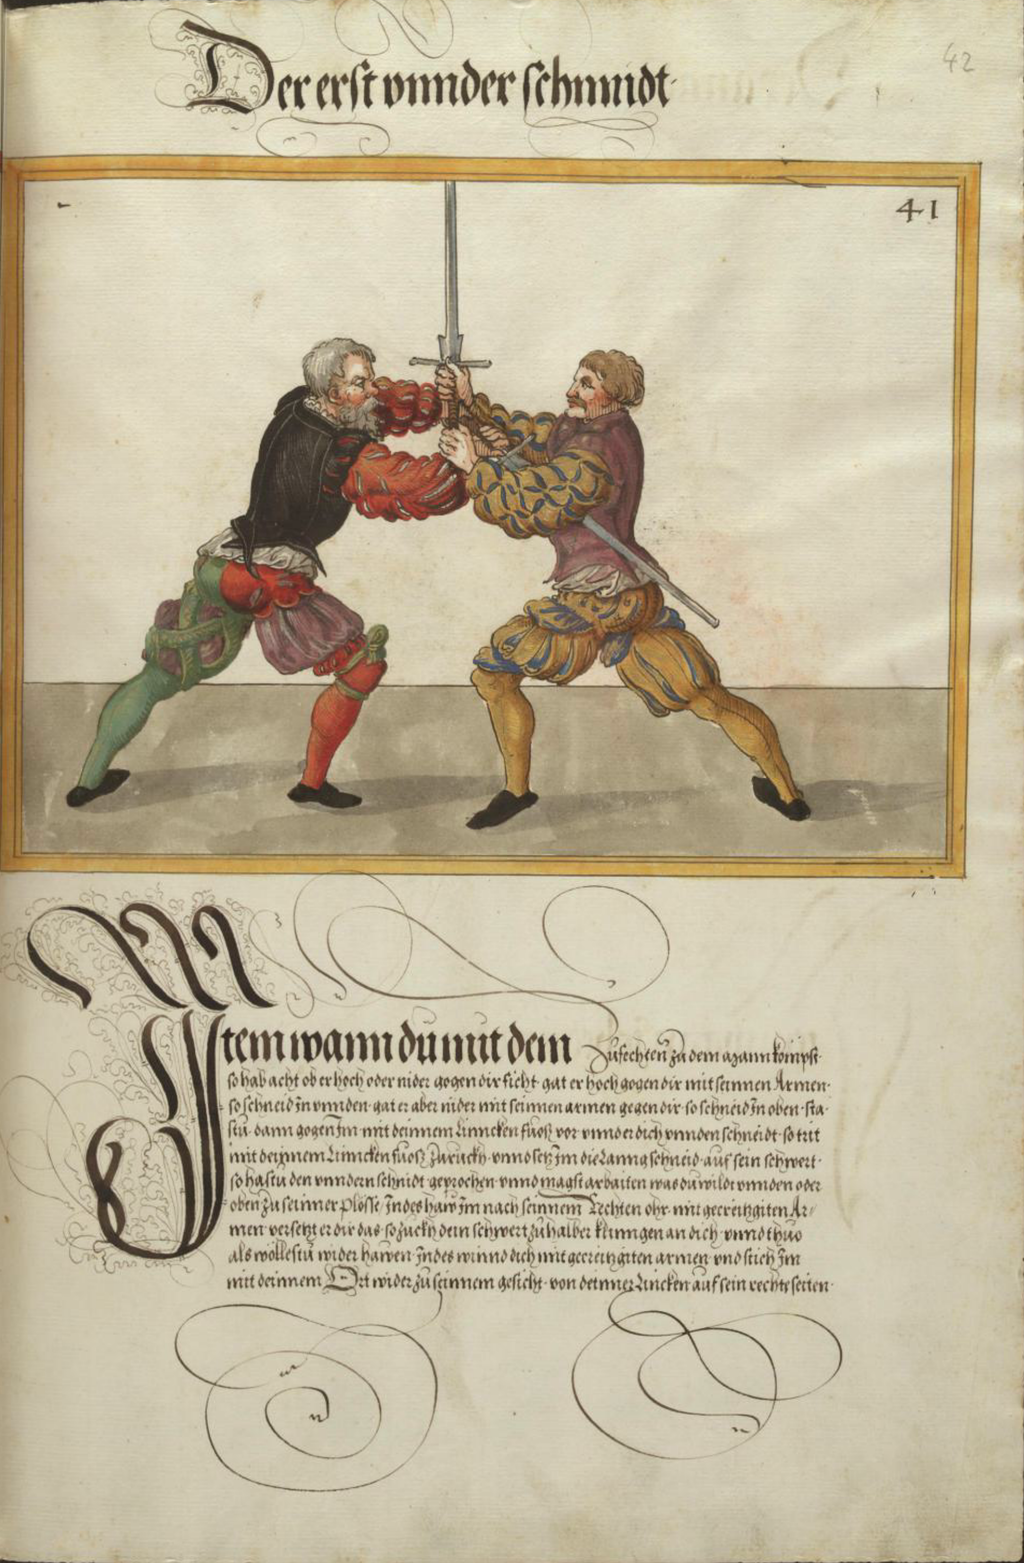 42
Der erst vnnder schnnidt
41
Item wann du mit dem Zufechten zu dem Mann kompst
so hab acht ob er hoch oder nider gogen dir ficht gat er hoch gogen dir mit seinnen Armen
so schneid In vnnden gat er aber nider mit seinnen armen gegen dir so schneid In oben sta
stu dann gogen Im mit deinnem Linncken fuos vor vnnd er dich vnnden schneidt so trit
mit deinnem Linncken fuos zuruckh vnnd setz Im die Lanng schneid auf sein schwert
so hastu den vnndern schnidt geprochen vnnd magst arbaiten was du wildt vnnden oder
oben zu seinner plosse Indes haw Im nach seinnem Rechten ohr mit gecreitzgiten Ar=
men versetzt er dir das so zuckh dein schwert zu halber klinngen an dich vnnd thuo
als wöllestu wider hawen Indes winnd dich mit gecreitzgiten armen vnd stich Im
mit deinnem Ort wider zu seinnem gesicht von deinner Lincken auf sein rechte seiten